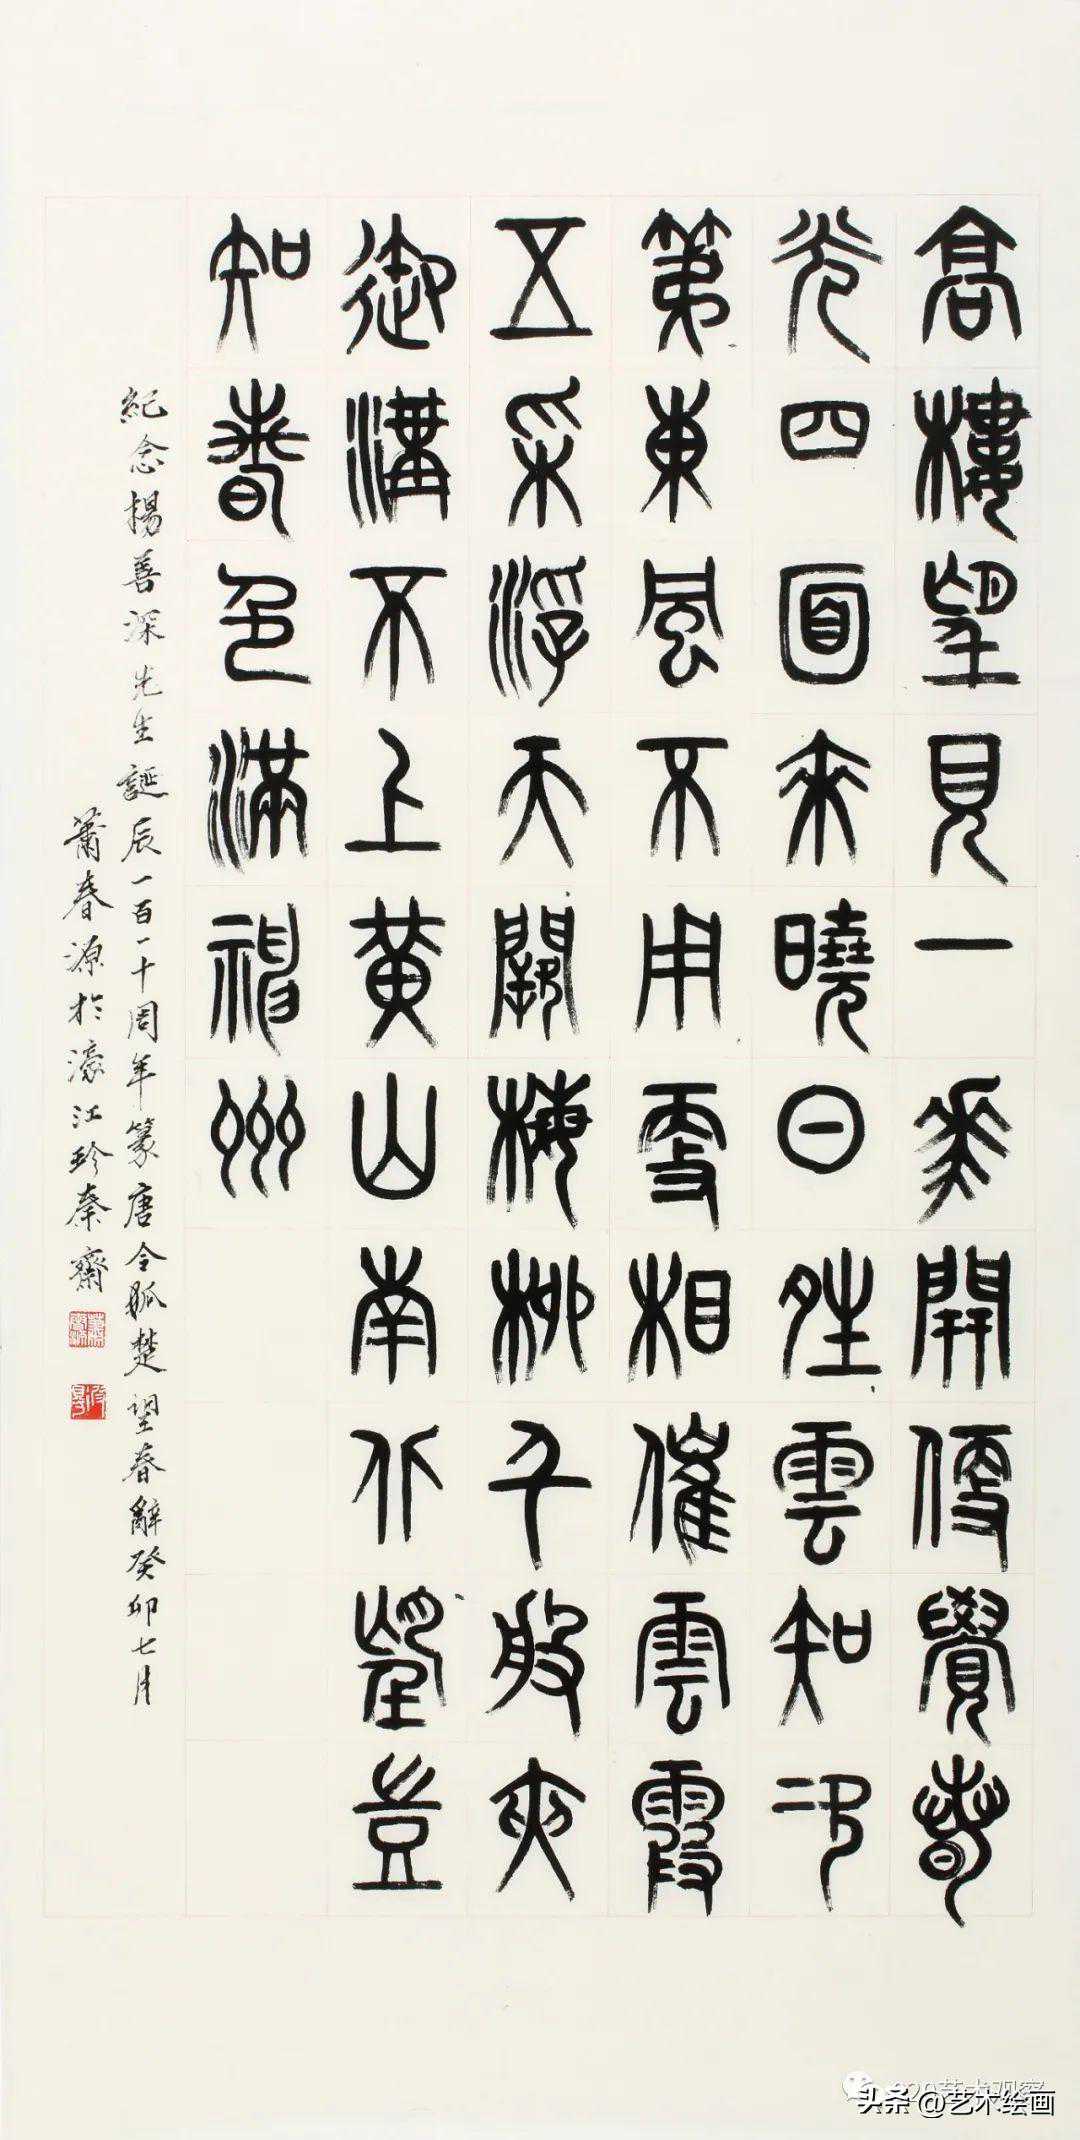 高樓望見一花開便覺春
光四面來曉日晴雲知次
第東風不用更相催雲霞
五采浮天闕梅柳千般夾
御溝不上黃山南北望豈
知春色滿神州
紀念楊善深先生誕辰一百一十周年篆唐令狐楚望春辭癸卯七月
蕭春源於濠江珍秦齋
头条 @艺术绘画